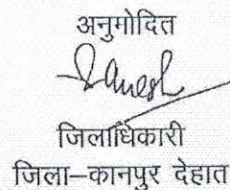 अनुमोदित
जिलाधिकारी
जिला–कानपुर देहात